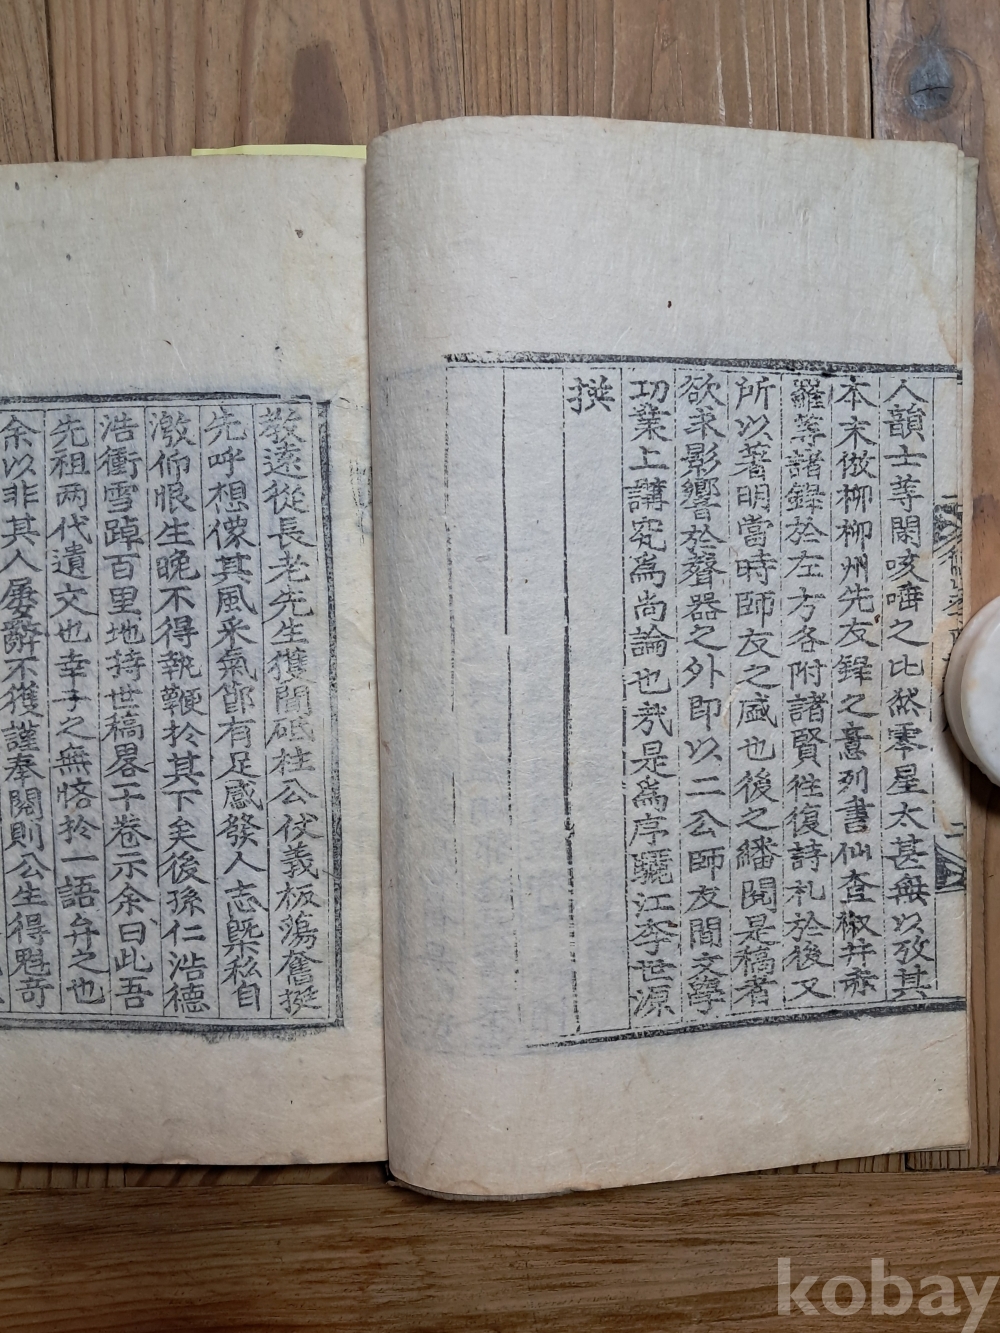 人韻士等閑咳唾之比然零星太甚無以攷其
本末倣柳柳州先友錄之意列書仙查椒井赤
羅等諸錄於左方各附諸賢往復詩札於後又
所以著明當時師友之盛也後之繙閱是稿者
欲求影響於聲器之外即以二公師友間文學
功業上講究爲尚論也哉是爲序驪江李世源
撰
敎遠從長老先生獲聞砥柱公仗義板蕩奮挺
先呼想像其風采氣節有足感發人志槩私自
激仰恨生晚不得執鞭於其下矣後孫仁浩德
浩衝雪踔百里地持世稿畧干卷示余曰此吾
先祖两代遺文也幸子之無悋於一語弁之也
余以非其人屢辭不獲謹奉閱則公生得魁奇
kobay